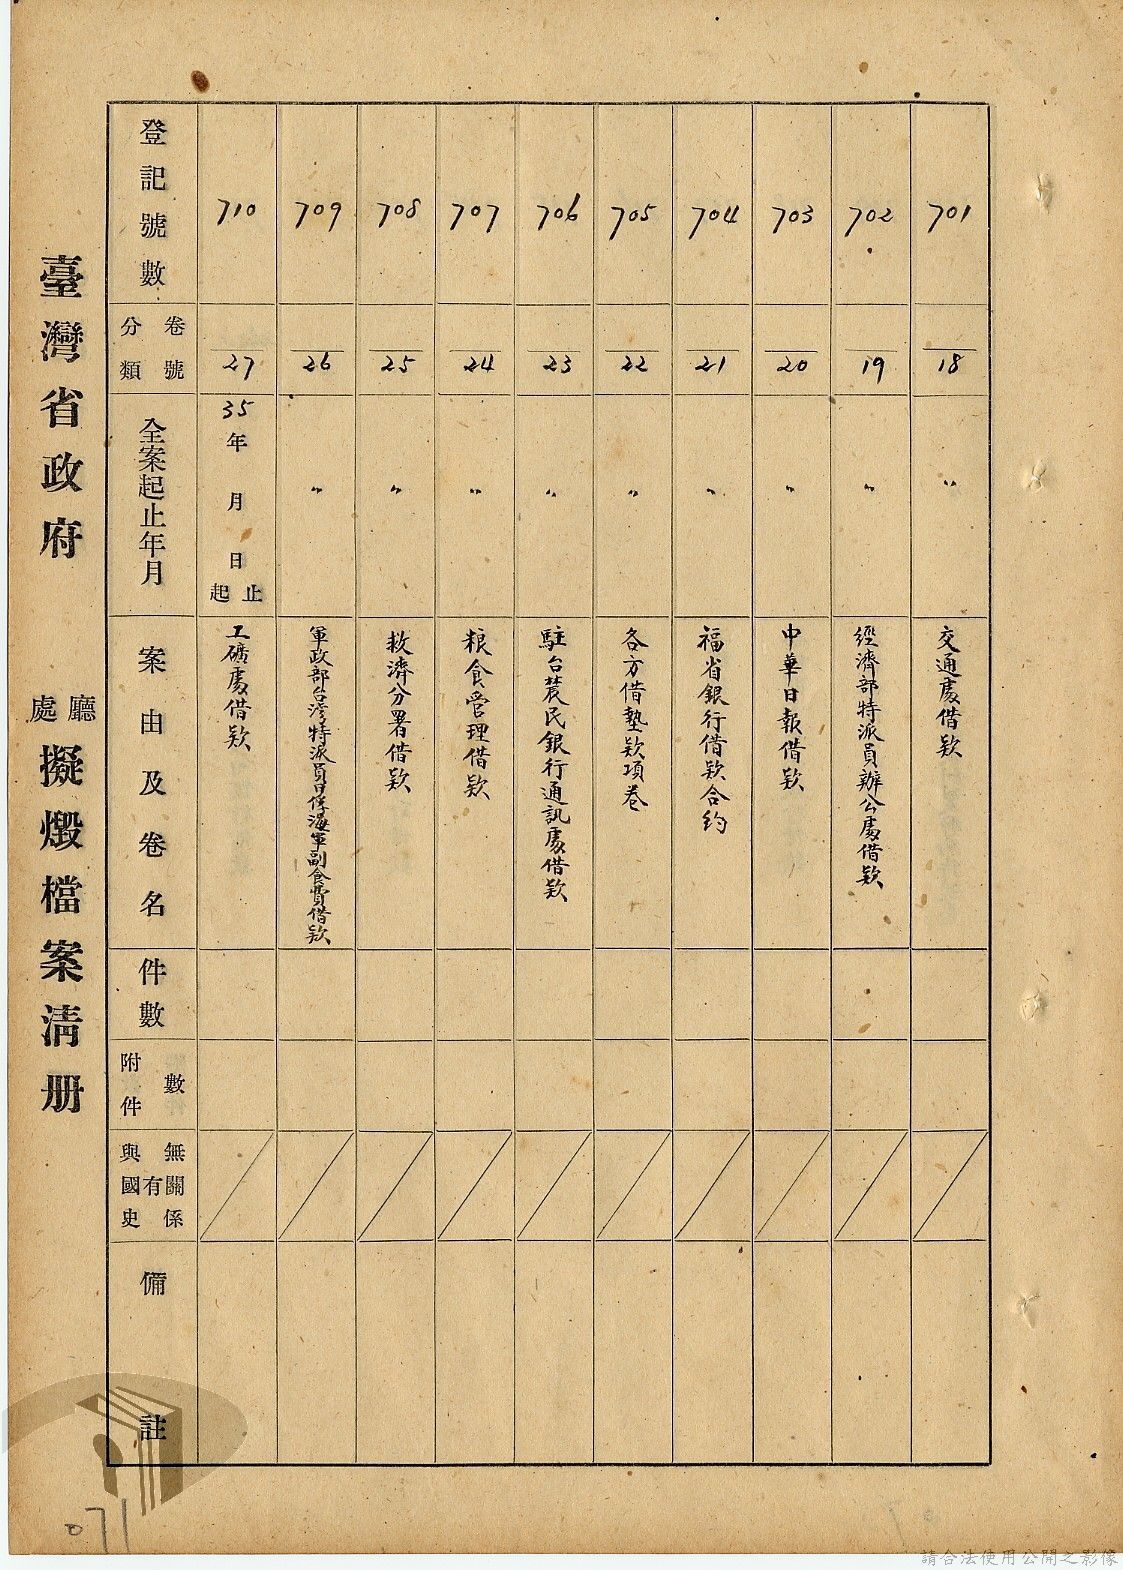 臺灣省政府 廳處 擬燬檔案清册
登記號數
卷號
分類
全案起止年月
案由及卷名
件數
附件數
與國史有無關係
備註
710
27
35年 月 日 起止
工礦處借款
709
26
〃
軍政部台湾特派員日俘海軍副食費借款
708
25
〃
救濟分署借款
707
24
〃
粮食管理借款
706
23
〃
駐台農民銀行通訊處借款
705
22
〃
各方借墊款項卷
704
21
〃
福省銀行借款合約
703
20
〃
中華日報借款
702
19
〃
經濟部特派員辦公處借款
701
18
〃
交通處借款
071
請合法使用公開之影像